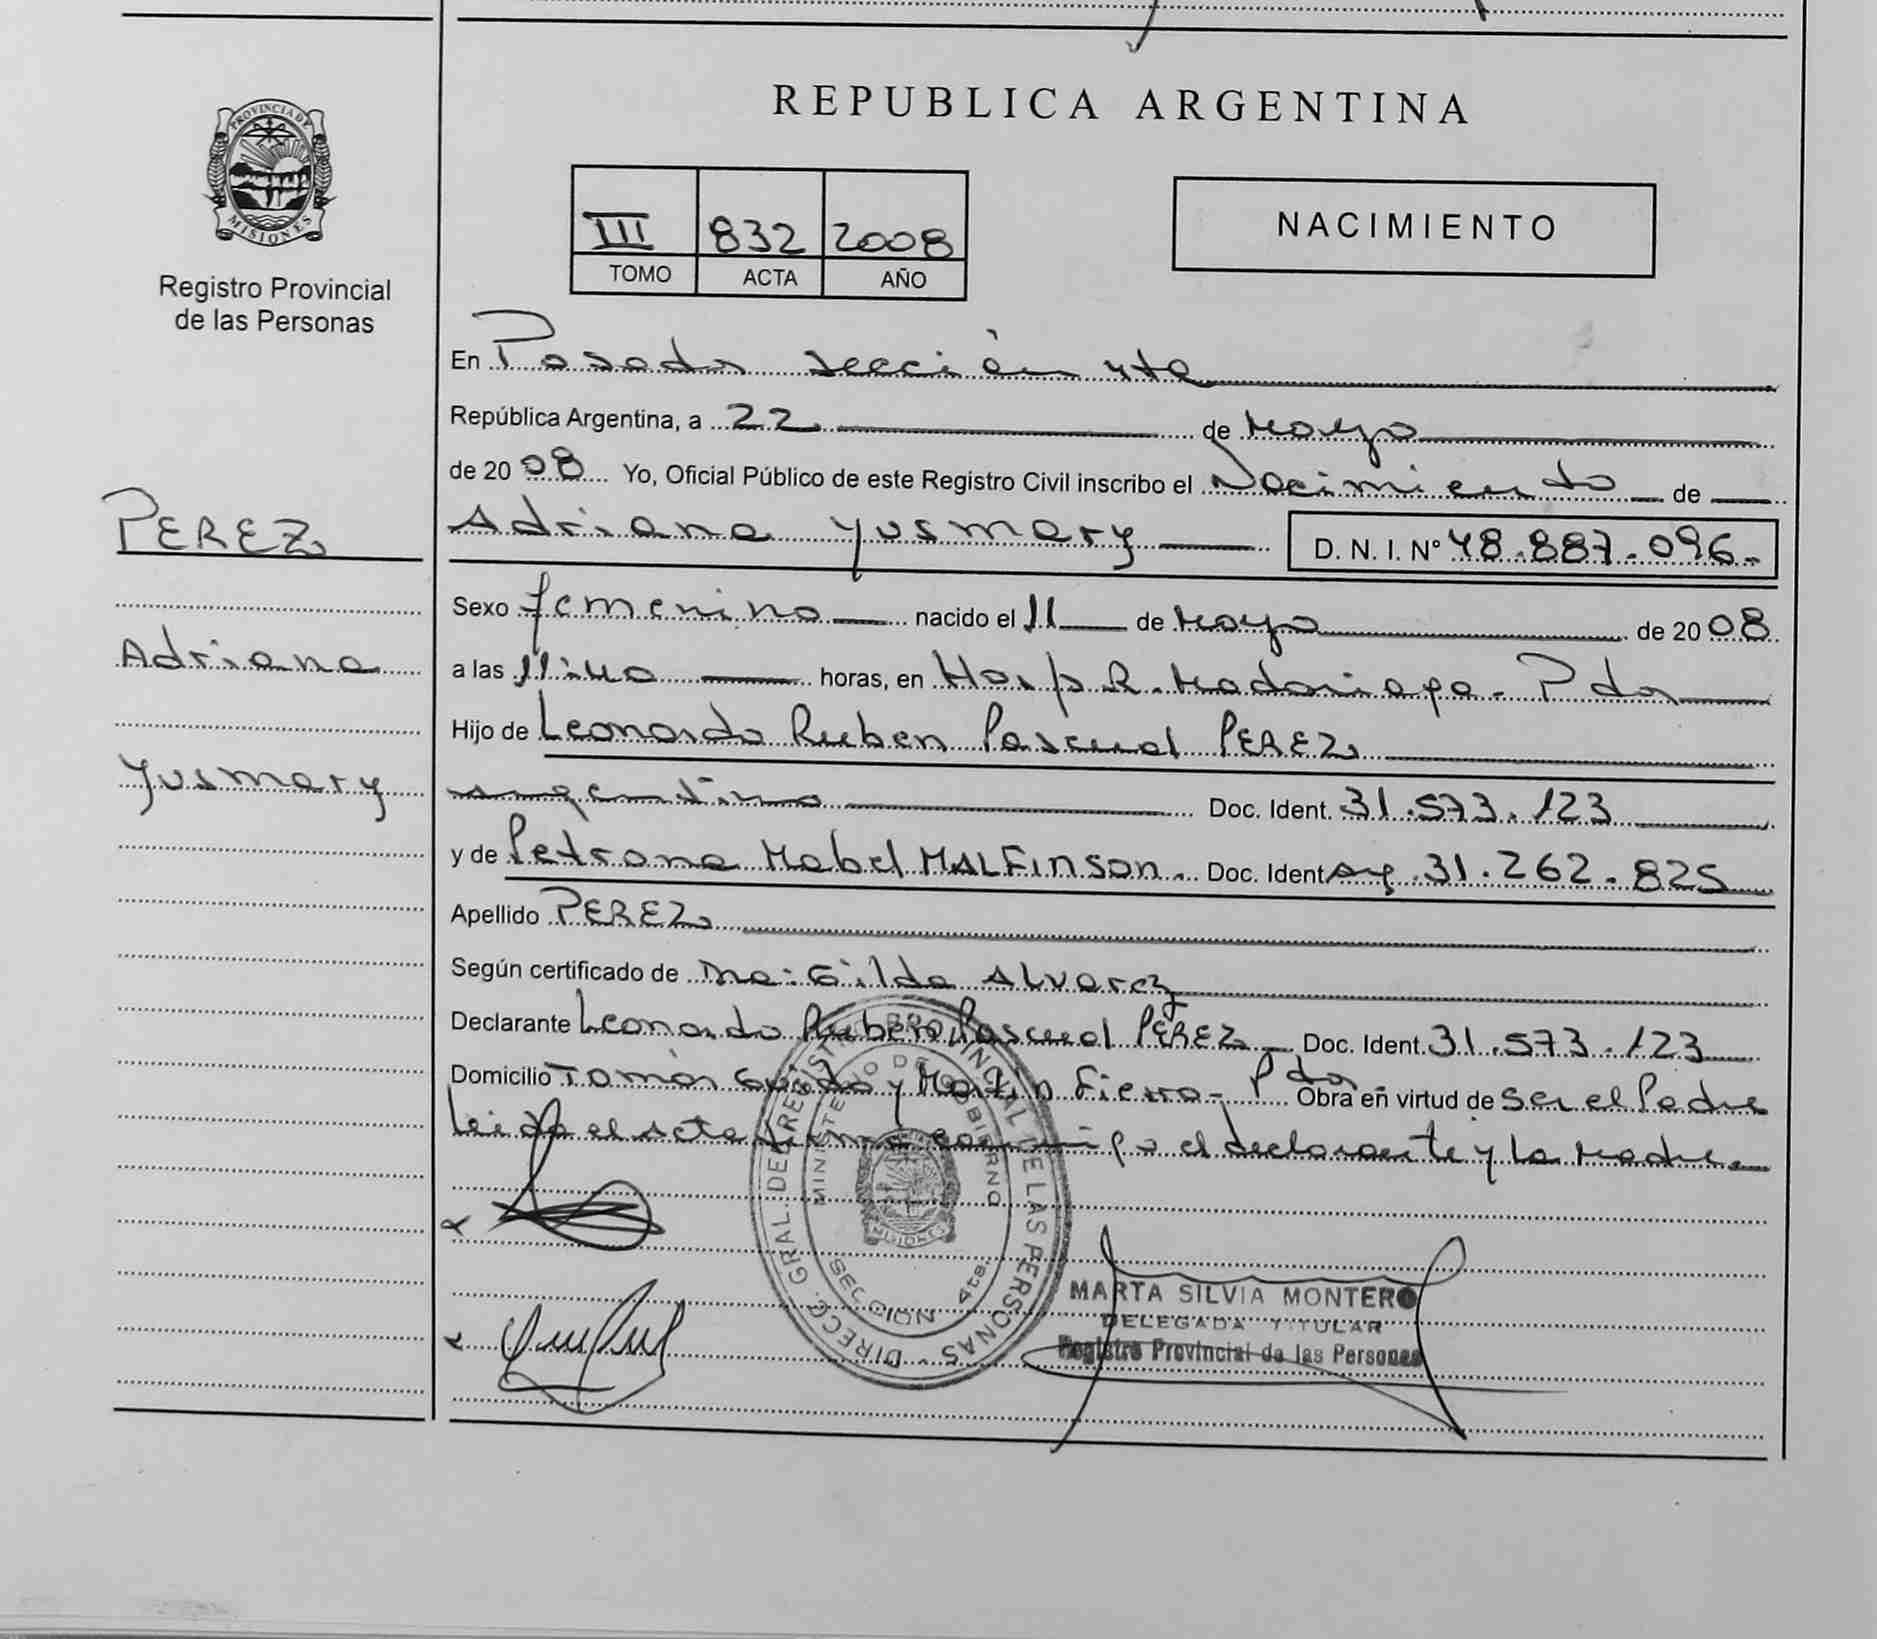 PROVINCIA DE
MISIONES
Registro Provincial
de las Personas
REPUBLICA ARGENTINA
III 832 2008
TOMO ACTA AÑO
NACIMIENTO
En Posadas sección 4ta
República Argentina, a 22 de Mayo
de 20 08 Yo, Oficial Público de este Registro Civil inscribo el Nacimiento de
PEREZ
Adriana Yusmary D. N. I. N° 48.887.096.-
Sexo femenino nacido el 11 de Mayo de 20 08
Adriana
a las 11:40 horas, en Hosp. R. Madariaga - Pdas
Hijo de Leonardo Ruben Pascual PEREZ
Yusmary
argentino Doc. Ident. 31.573.123
y de Petrona Mabel MALFINSON. Doc. Ident Arg. 31.262.825
Apellido PEREZ
Según certificado de Ma. Gilda Alvarez
Declarante Leonardo Ruben Pascual PEREZ Doc. Ident. 31.573.123
Domicilio Tomás Guido y Martin Fierro - Pdas Obra en virtud de ser el Padre
leida el acta firma conmigo el declarante y la Madre.
DIRECC. GRAL. DE REGISTRO PROVINCIAL DE LAS PERSONAS
MINISTERIO DE GOBIERNO
MISIONES
SECCION 4ta.
MARTA SILVIA MONTERO
DELEGADA TITULAR
Registro Provincial de las Personas